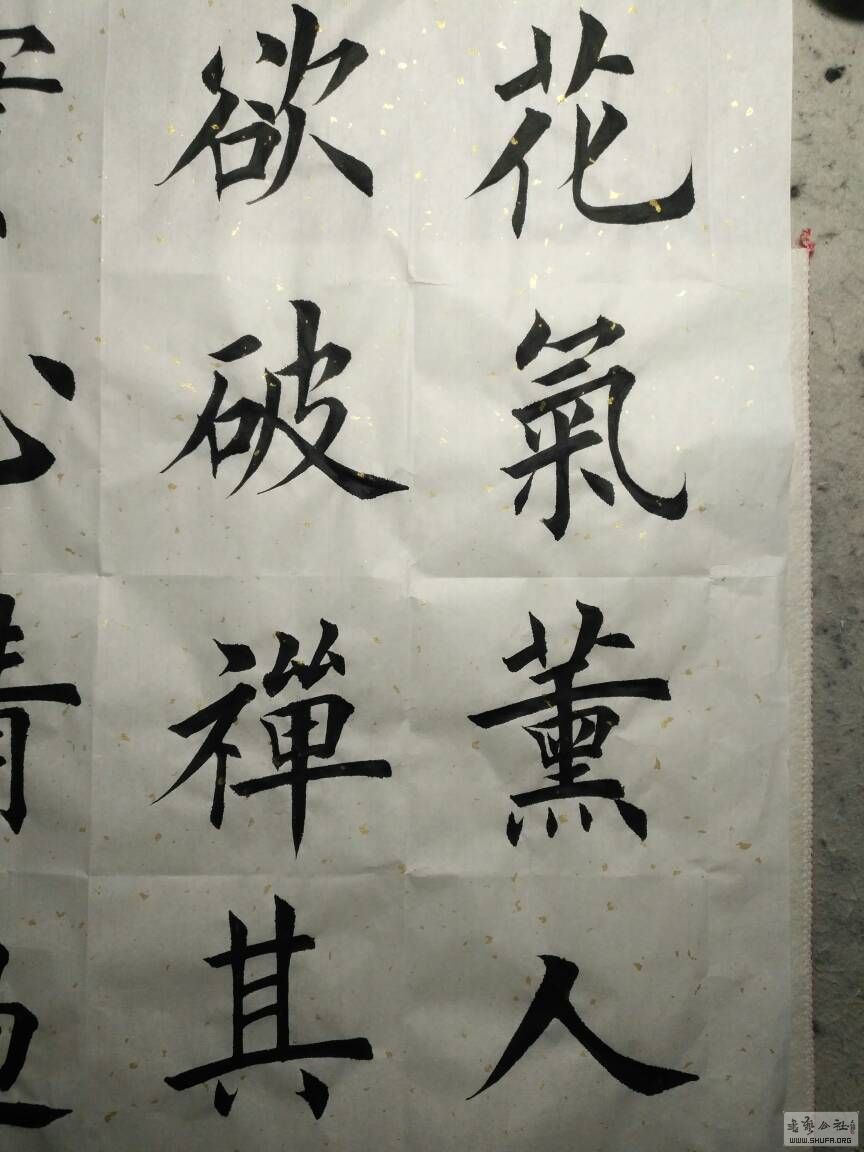 花氣薰人
欲破禪其
書藝公社
WWW.SHUFA.ORG